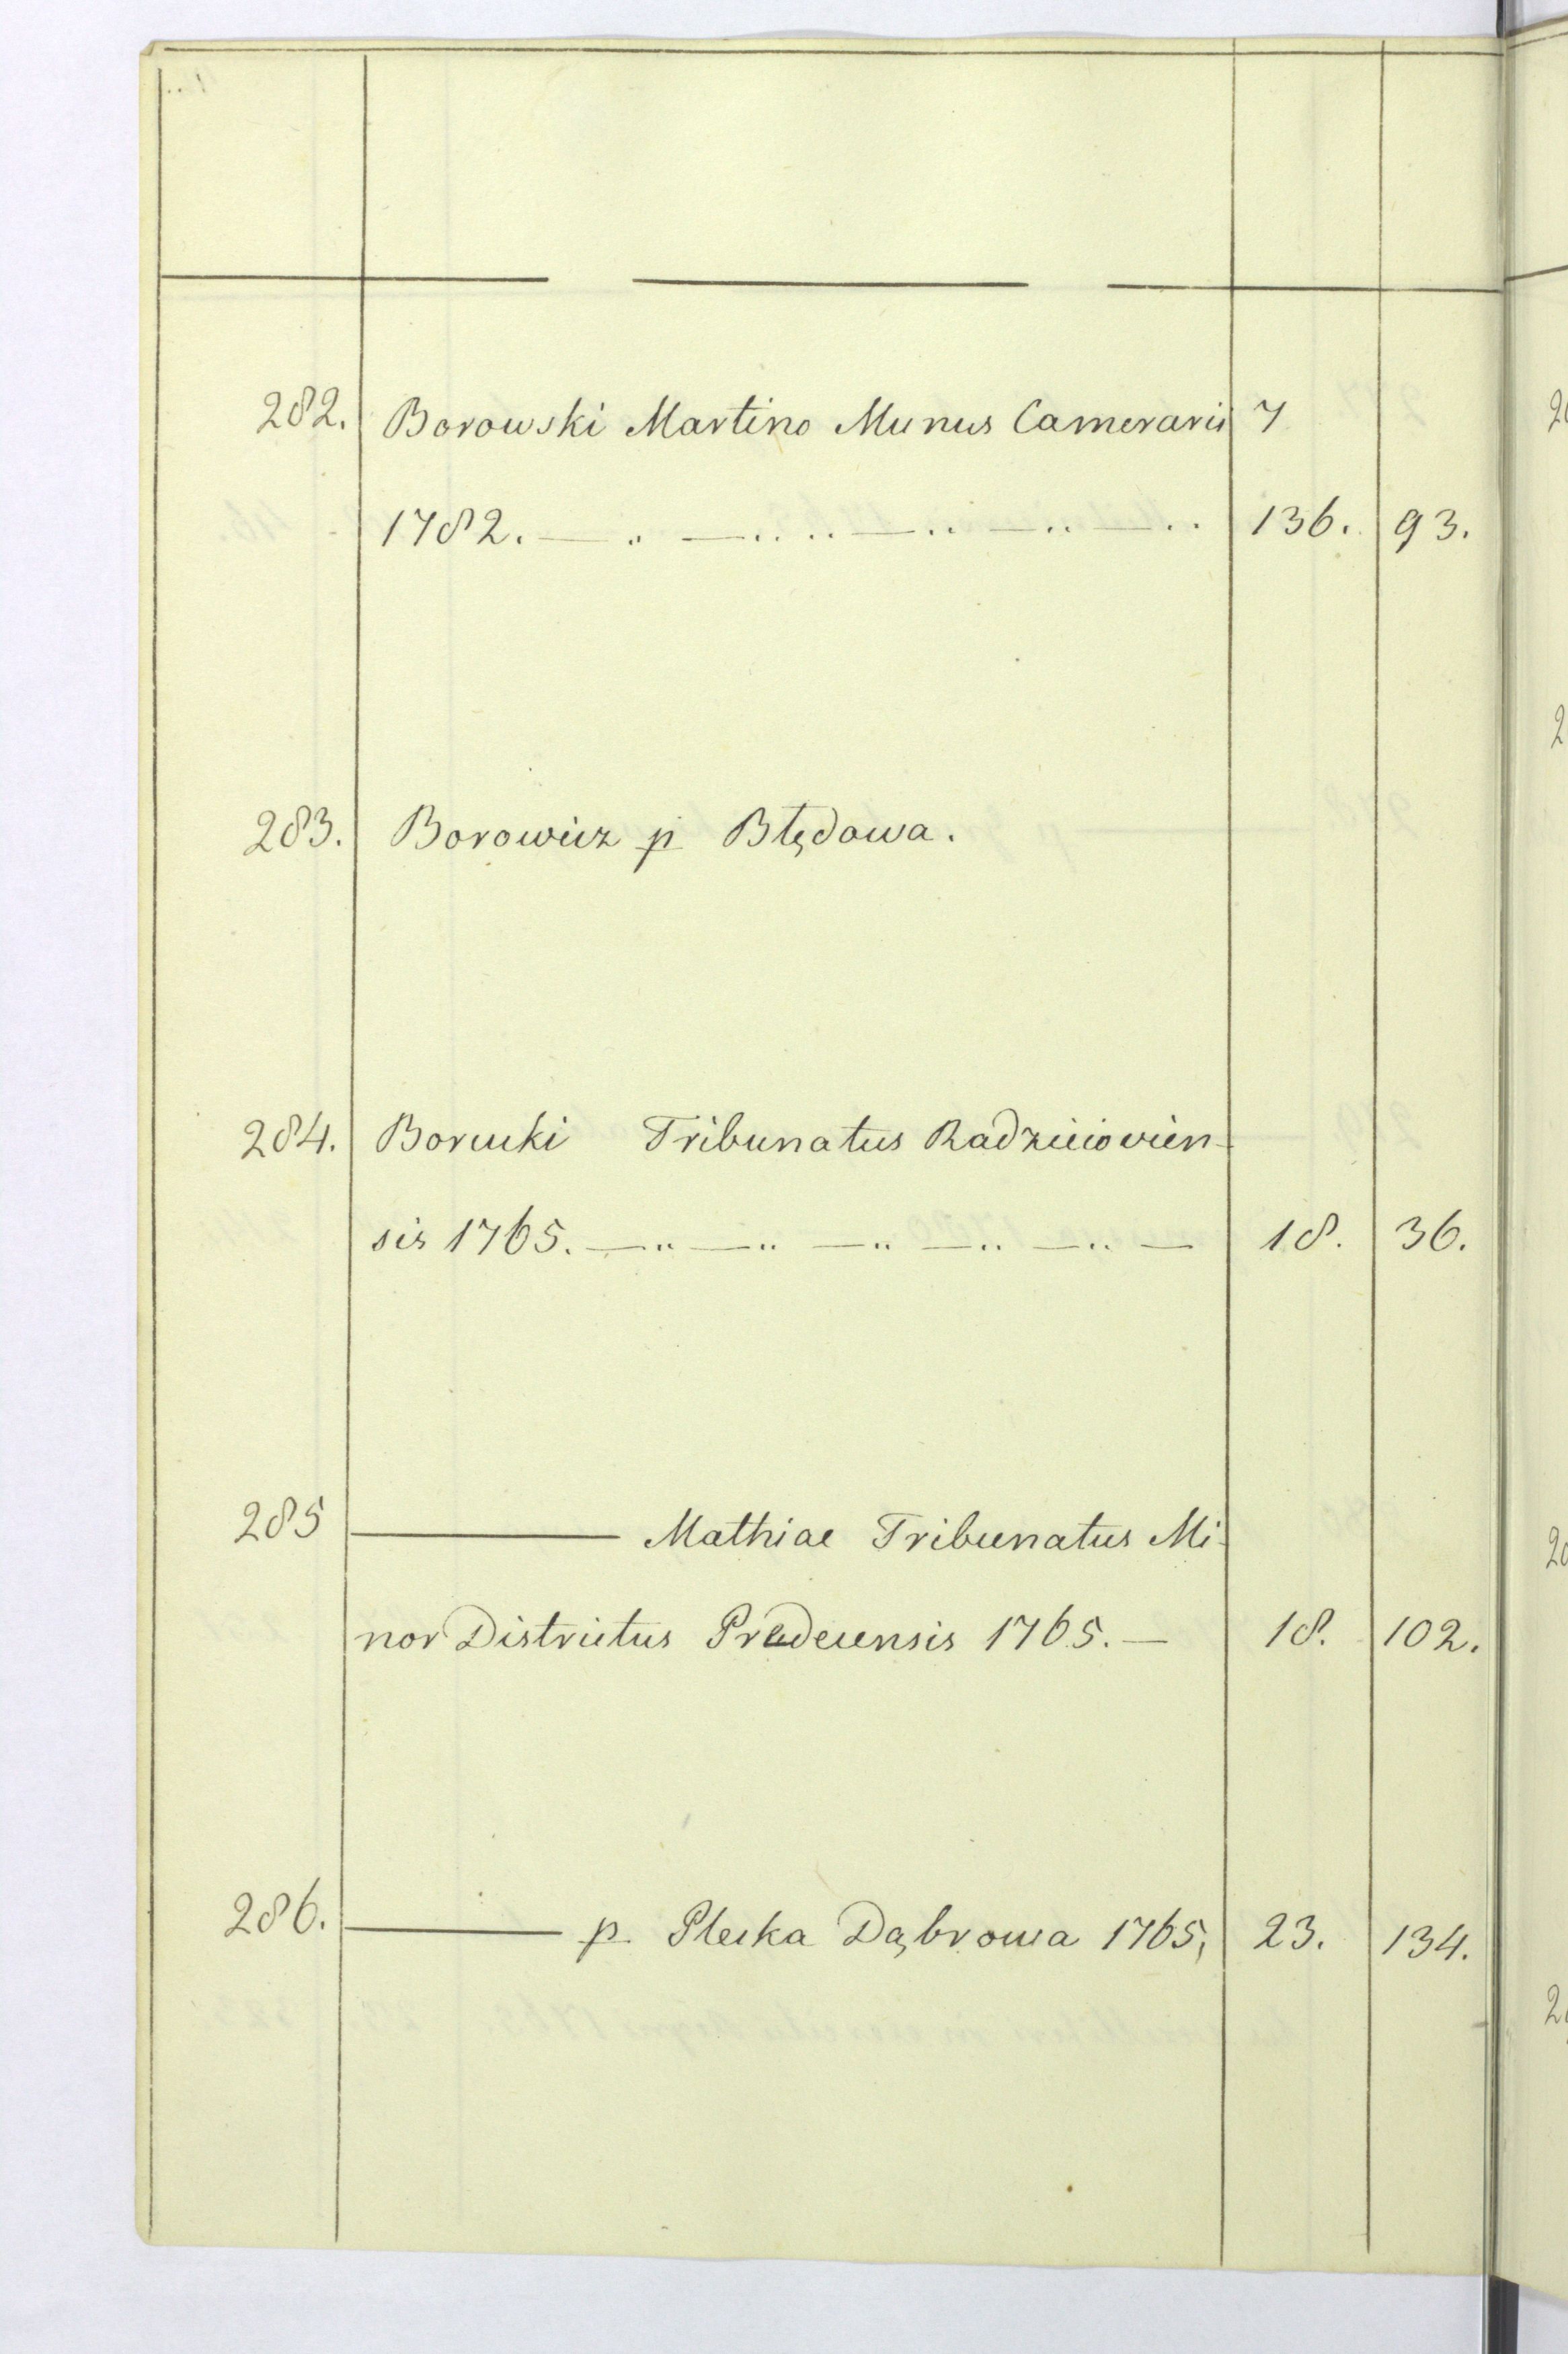 282. Borowski Martino Munus Cameraris 7
1782. — .. — .. .. — .. — .. — .. 136. 93.
283. Borowicz p Błędowa.
284. Borucki Tribunatus Radziiovien-
sis 1765. — .. — .. — .. — .. — .. — 18. 36.
285 ——— Mathiae Tribunatus Mi-
nor Districtus Predecensis 1765. — 18. 102.
286. ——— p. Plecka Dąbrowa 1765, 23. 134.